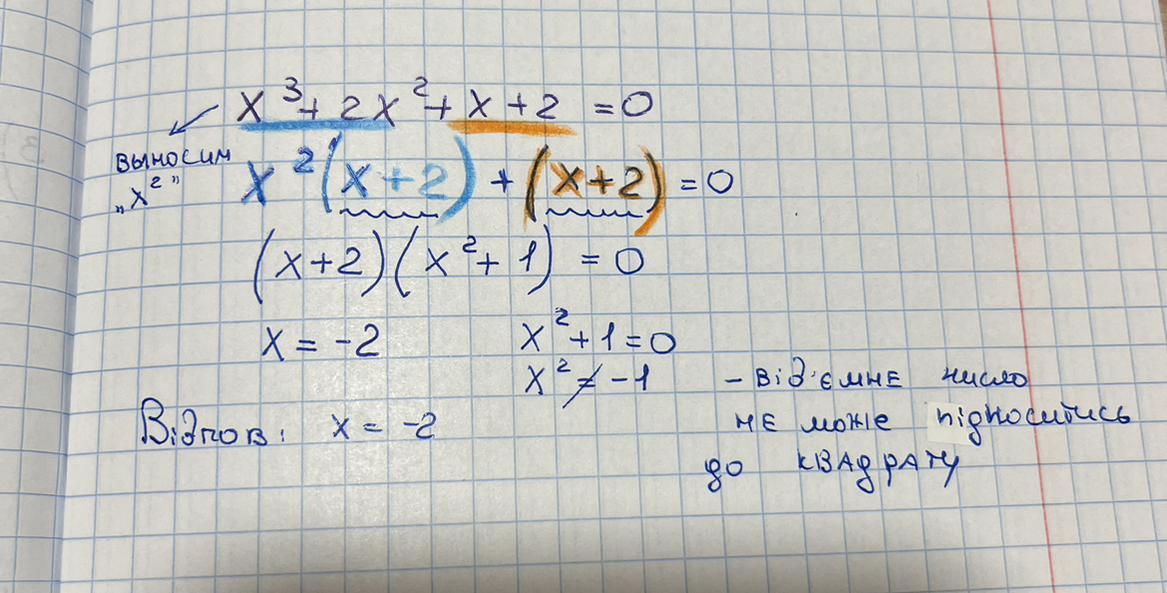 x³ + 2x² + x + 2 = 0
выносим
„x²”
x²(x+2) + (x+2) = 0
(x+2)(x²+1) = 0
x = -2
x²+1=0
x² ≠ -1
- від'ємне число
не може підноситись
до квадрату
Відпов: x = -2